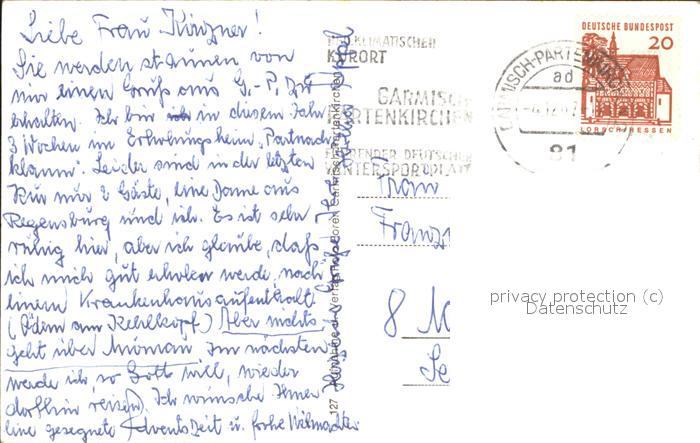 Liebe Frau Kinzner!
Sie werden staunen von
mir einen Gruß aus G.-P. zu
erhalten. Ich bin in diesem Jahr
3 Wochen im Erholungsheim "Partnach
klamm". Leider sind in der letzten
Kur nur 2 Gäste, eine Dame aus
Regensburg und ich. Es ist sehr
ruhig hier, aber ich glaube, daß
ich mich gut erholen werde nach
einem Krankenhausaufenthalt
(Ödem am Kehlkopf) Aber nichts
geht über Meran. Im nächsten
werde ich, so Gott will, wieder
dorthin reisen. Ich wünsche Ihnen
eine gesegnete Adventszeit u. frohe Weihnachten
Herzliche Grüße Ihre
127
Verlag
Garmisch-Partenkirchen
HEILKLIMATISCHER
KURORT
GARMISCH
PARTENKIRCHEN
FÜHRENDER DEUTSCHER
WINTERSPORTPLATZ
GARMISCH-PARTENKIRCHEN
ad
81
DEUTSCHE BUNDESPOST
20
LORSCH/HESSEN
Frau
8 M
privacy protection (c)
Datenschutz